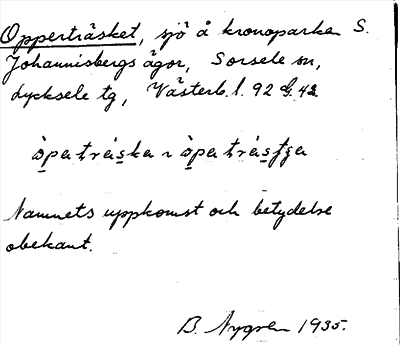 Opperträsket, sjö å kronoparken S.
Johannisbergs ägor, Sorsele sn,
Lycksele tg, Västerb. l. 92 G. 42
Namnets uppkomst och betydelse
obekant.
B. Nygren 1935.